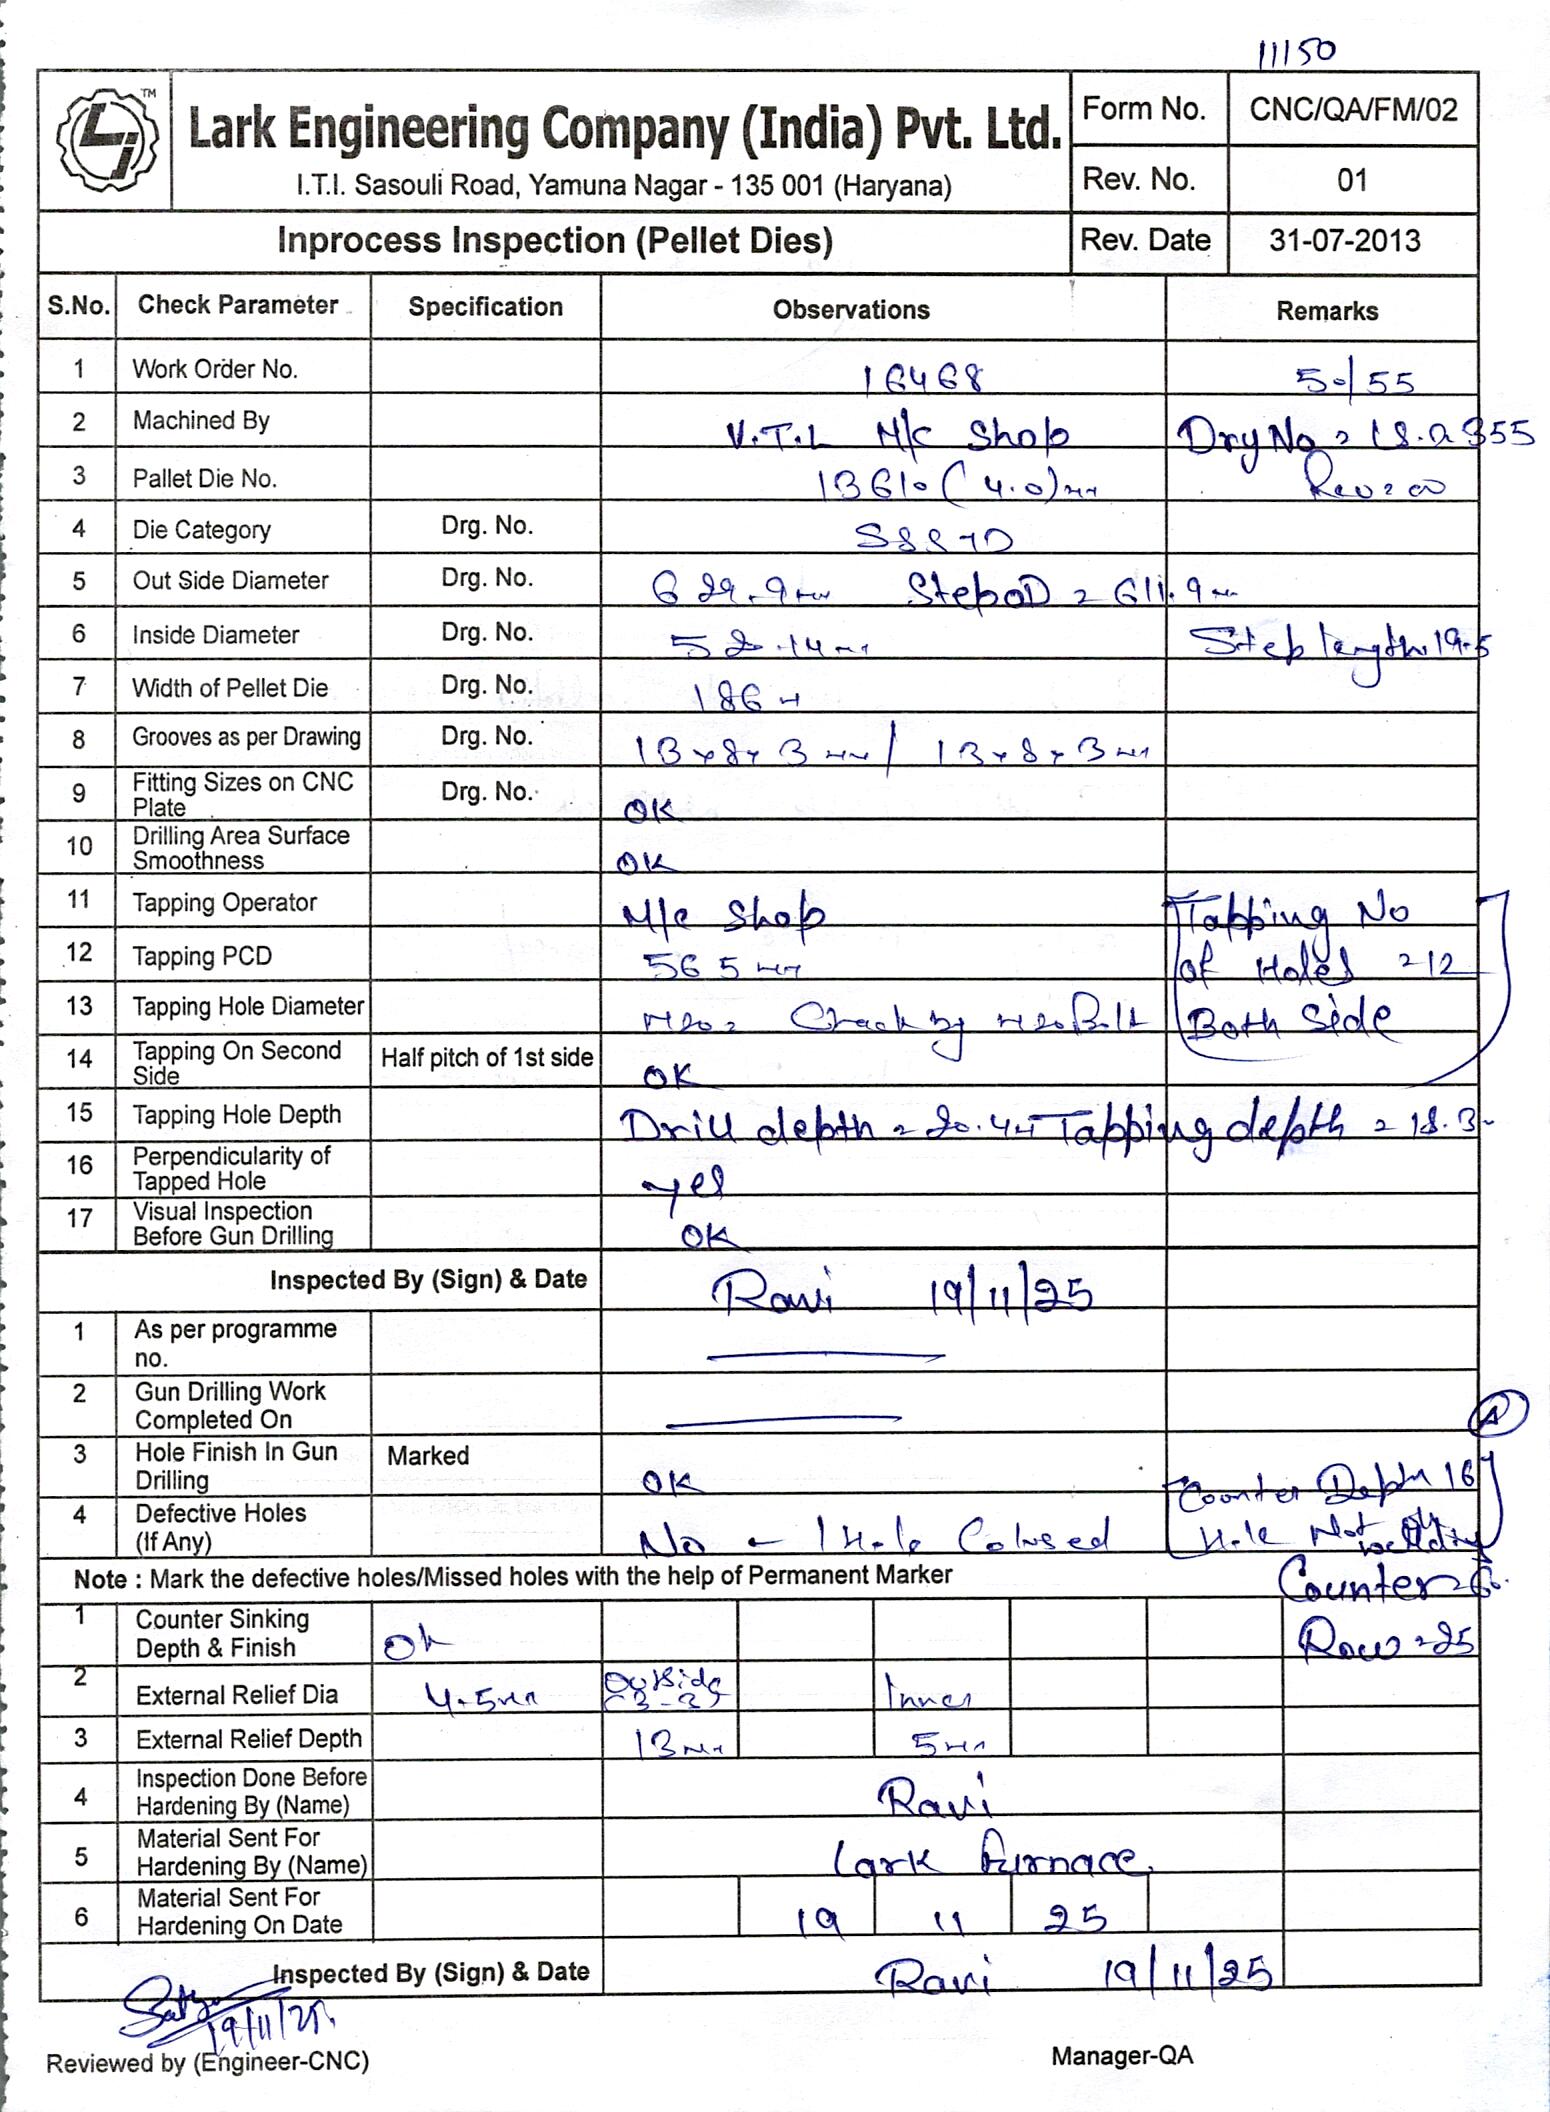 11150
LJ TM
Lark Engineering Company (India) Pvt. Ltd.
I.T.I. Sasouli Road, Yamuna Nagar - 135 001 (Haryana)
Form No. CNC/QA/FM/02
Rev. No. 01
Inprocess Inspection (Pellet Dies) Rev. Date 31-07-2013
S.No. Check Parameter Specification Observations Remarks
1 Work Order No. 16468 50/55
2 Machined By V.T.L M/c Shop
3 Pallet Die No. 13610 (4.0)mm
4 Die Category Drg. No.
5 Out Side Diameter Drg. No. 629.9mm StepOD = 611.9mm
6 Inside Diameter Drg. No. Step length 19.5
7 Width of Pellet Die Drg. No. 186
8 Grooves as per Drawing Drg. No. 13x8x3mm / 13x8x3mm
9 Fitting Sizes on CNC Plate Drg. No. OK
10 Drilling Area Surface Smoothness OK
11 Tapping Operator M/c Shop Tapping No
12 Tapping PCD 565mm of Holes =12
13 Tapping Hole Diameter M20 = Check by M20 Bolt Both Side
14 Tapping On Second Side Half pitch of 1st side OK
15 Tapping Hole Depth Drill depth = 20.4 Tapping depth = 18.3
16 Perpendicularity of Tapped Hole yes
17 Visual Inspection Before Gun Drilling OK
Inspected By (Sign) & Date Ravi 19/11/25
1 As per programme no.
2 Gun Drilling Work Completed On
A
3 Hole Finish In Gun Drilling Marked OK Counter Depth 16
4 Defective Holes (If Any) No - 1 Hole Hole Not
Note : Mark the defective holes/Missed holes with the help of Permanent Marker Counter
1 Counter Sinking Depth & Finish Ok Row = 25
2 External Relief Dia 4.5mm Outside Inner
3 External Relief Depth 13mm 5mm
4 Inspection Done Before Hardening By (Name) Ravi
5 Material Sent For Hardening By (Name) Lark Furnace
6 Material Sent For Hardening On Date 19 11 25
Inspected By (Sign) & Date Ravi 19/11/25
19/11/25
Reviewed by (Engineer-CNC) Manager-QA